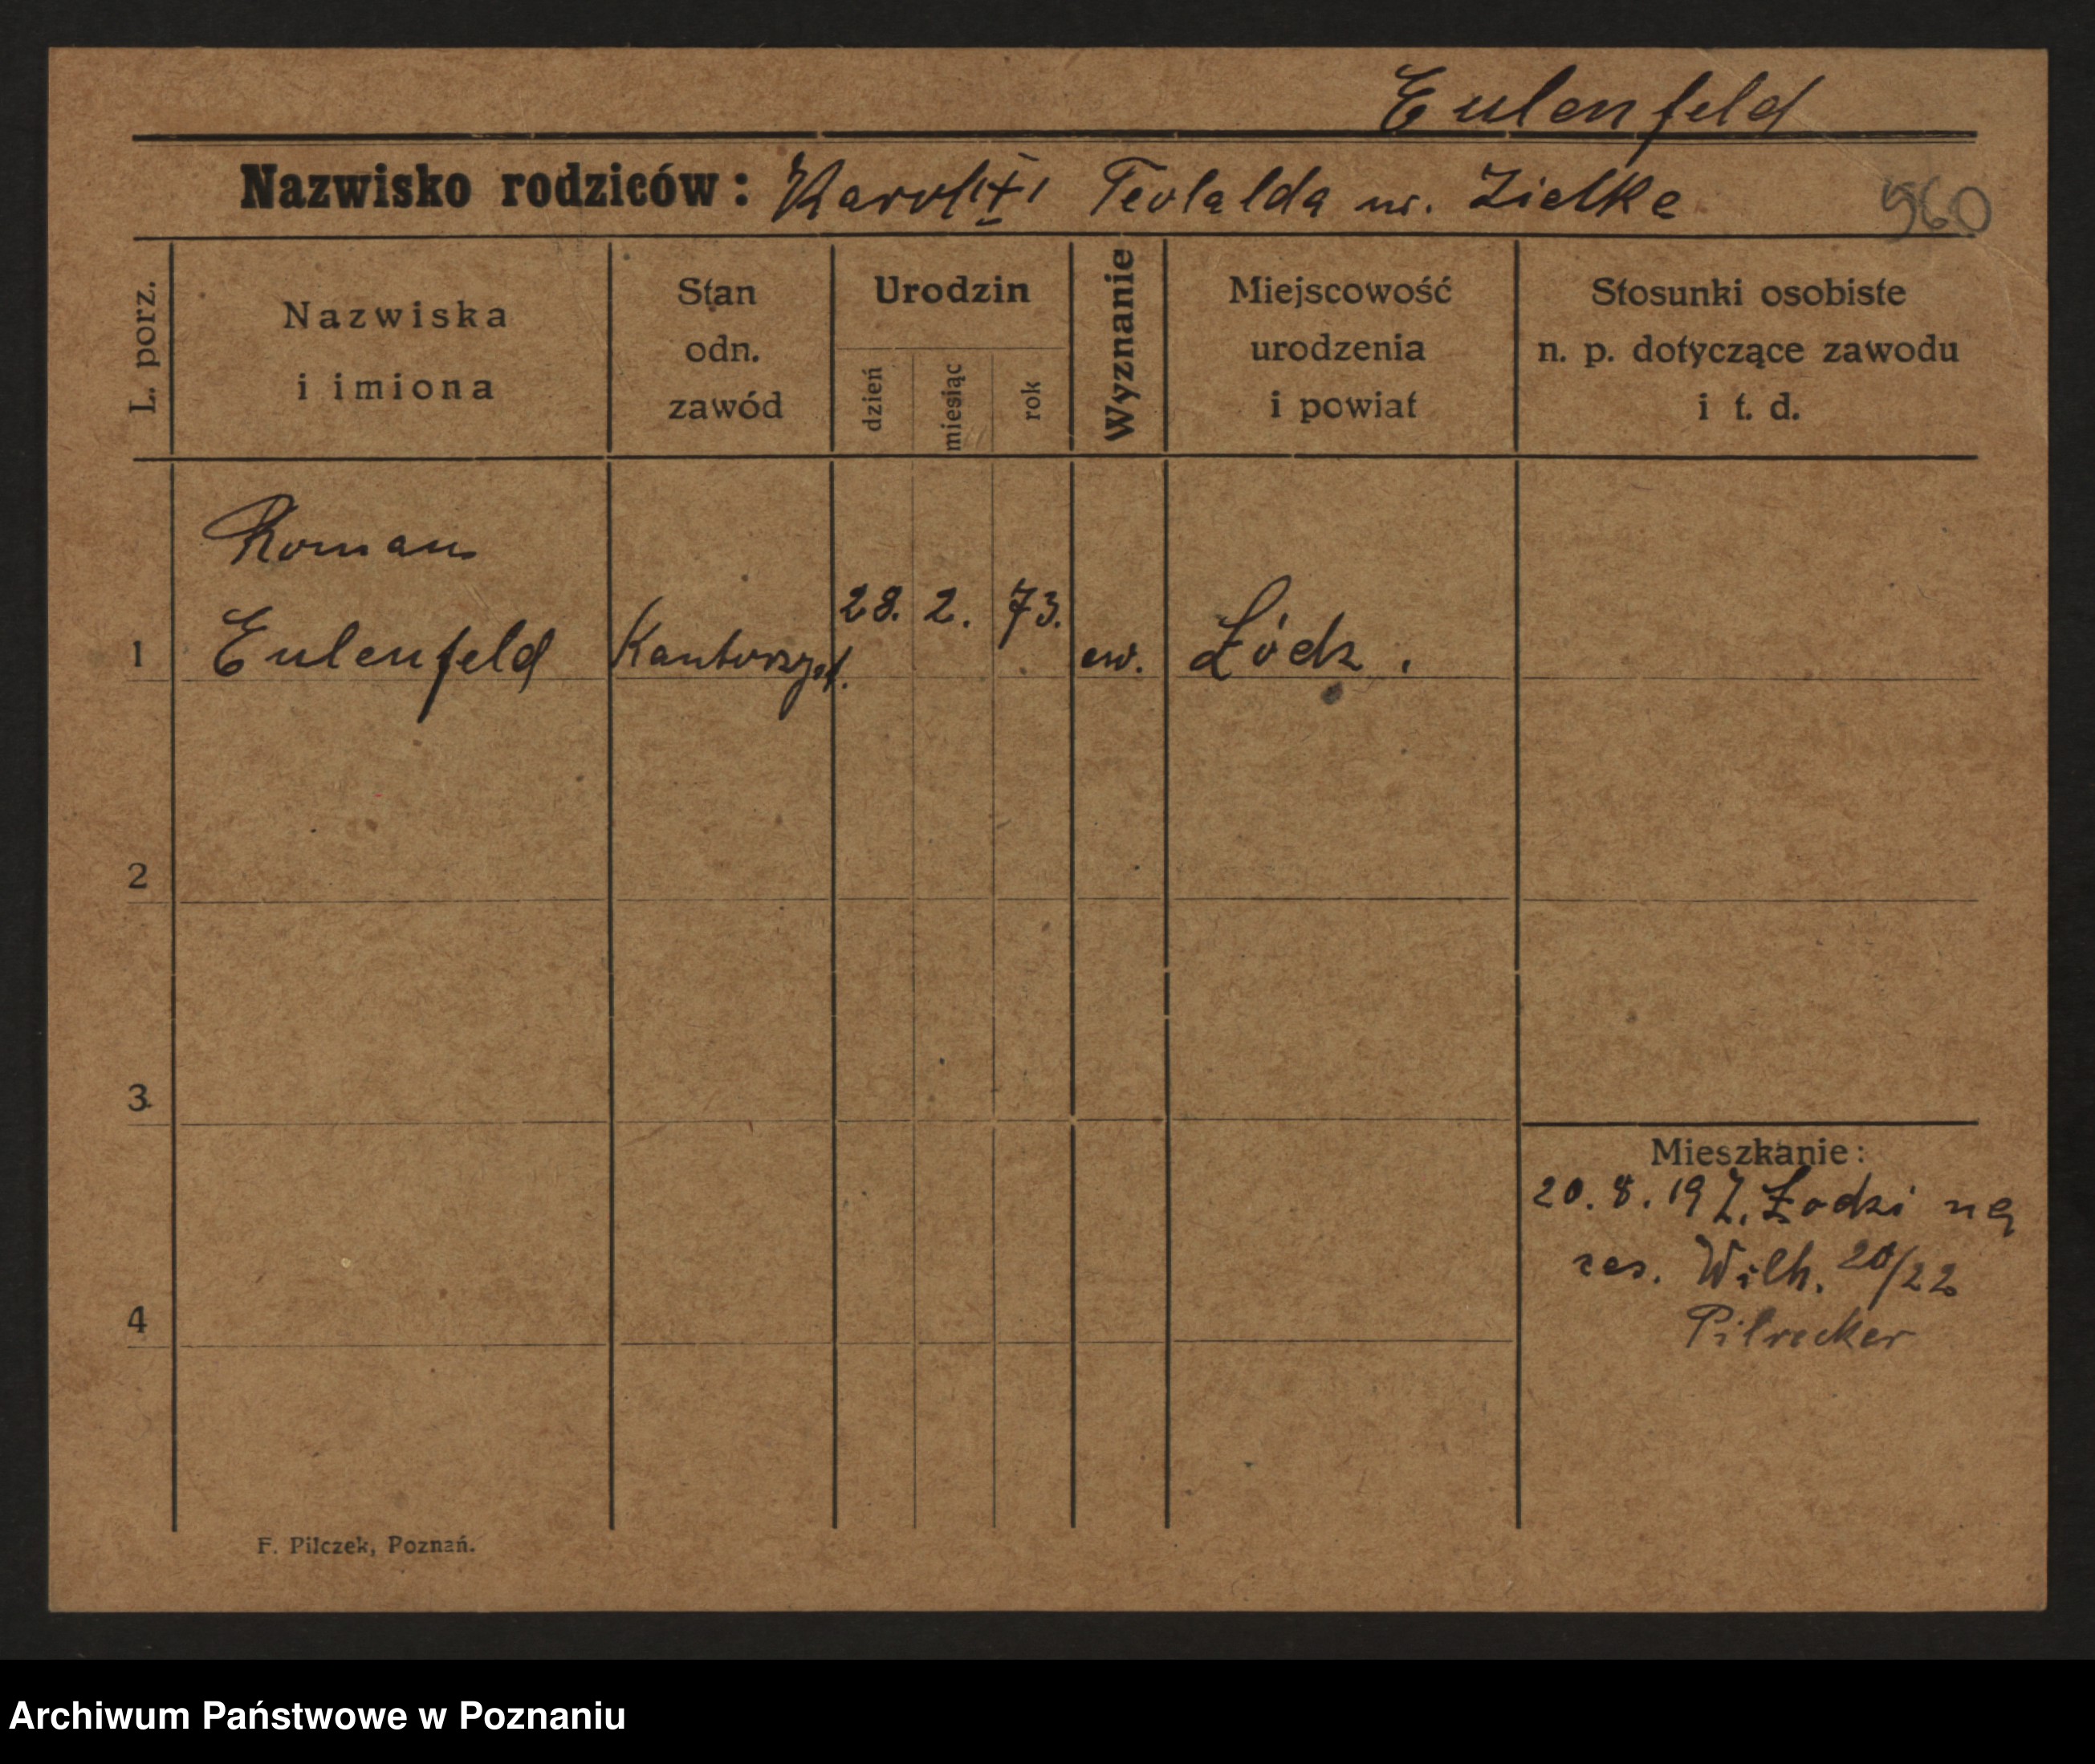 Eulenfeld
Nazwisko rodziców: Karol (+) ur. Zielke
560
L. porz.
Nazwiska
i imiona
Stan
odn.
zawód
Urodzin
dzień
miesiąc
rok
Wyznanie
Miejscowość
urodzenia
i powiat
Stosunki osobiste
n. p. dotyczące zawodu
i t. d.
Roman
1 Eulenfeld Kantorzyst. 28. 2. 73. ew. Łódz.
2
3
4
Mieszkanie:
20. 8. 19 z. Łodzi na
ces. Wilh. 20/22
F. Pilczek, Poznań.
Archiwum Państwowe w Poznaniu